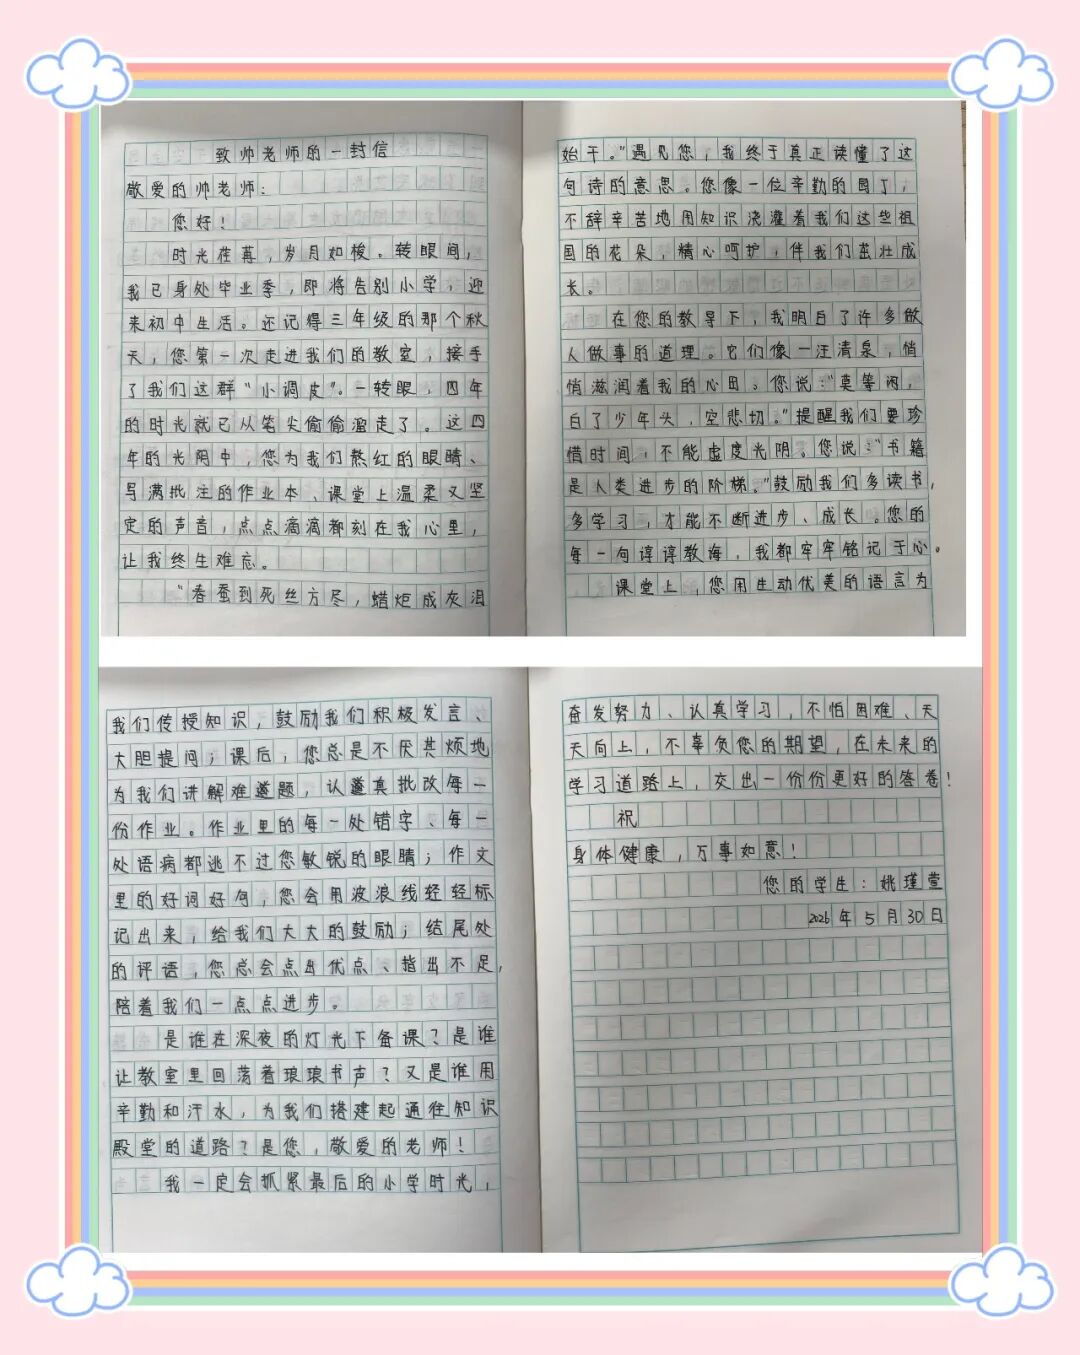 致帅老师的一封信
敬爱的帅老师：
您好！
时光荏苒，岁月如梭。转眼间，
我已身处毕业季，即将告别小学，迎
来初中生活。还记得三年级的那个秋
天，您第一次走进我们的教室，接手
了我们这群“小调皮”。一转眼，四年
的时光就已从笔尖偷偷溜走了。这四
年的光阴中，您为我们熬红的眼睛、
写满批注的作业本、课堂上温柔又坚
定的声音，点点滴滴都刻在我心里，
让我终生难忘。
“春蚕到死丝方尽，蜡炬成灰泪
始干。”遇见您，我终于真正读懂了这
句诗的意思。您像一位辛勤的园丁，
不辞辛苦地用知识浇灌着我们这些祖
国的花朵，精心呵护，伴我们茁壮成
长。
在您的教导下，我明白了许多做
人做事的道理。它们像一汪清泉，悄
悄滋润着我的心田。您说：“莫等闲，
白了少年头，空悲切。”提醒我们要珍
惜时间，不能虚度光阴。您说：“书籍
是人类进步的阶梯。”鼓励我们多读书，
多学习，才能不断进步、成长。您的
每一句谆谆教诲，我都牢牢铭记于心。
课堂上，您用生动优美的语言为
我们传授知识，鼓励我们积极发言、
大胆提问；课后，您总是不厌其烦地
为我们讲解难题，认真批改每一
份作业。作业里的每一处错字、每一
处语病都逃不过您敏锐的眼睛；作文
里的好词好句，您会用波浪线轻轻标
记出来，给我们大大的鼓励；结尾处
的评语，您总会点出优点、指出不足，
陪着我们一点点进步。
是谁在深夜的灯光下备课？是谁
让教室里回荡着琅琅书声？又是谁用
辛勤和汗水，为我们搭建起通往知识
殿堂的道路？是您，敬爱的老师！
我一定会抓紧最后的小学时光，
奋发努力、认真学习，不怕困难、天
天向上，不辜负您的期望，在未来的
学习道路上，交出一份份更好的答卷！
祝
身体健康，万事如意！
您的学生：姚瑾萱
2026年5月30日